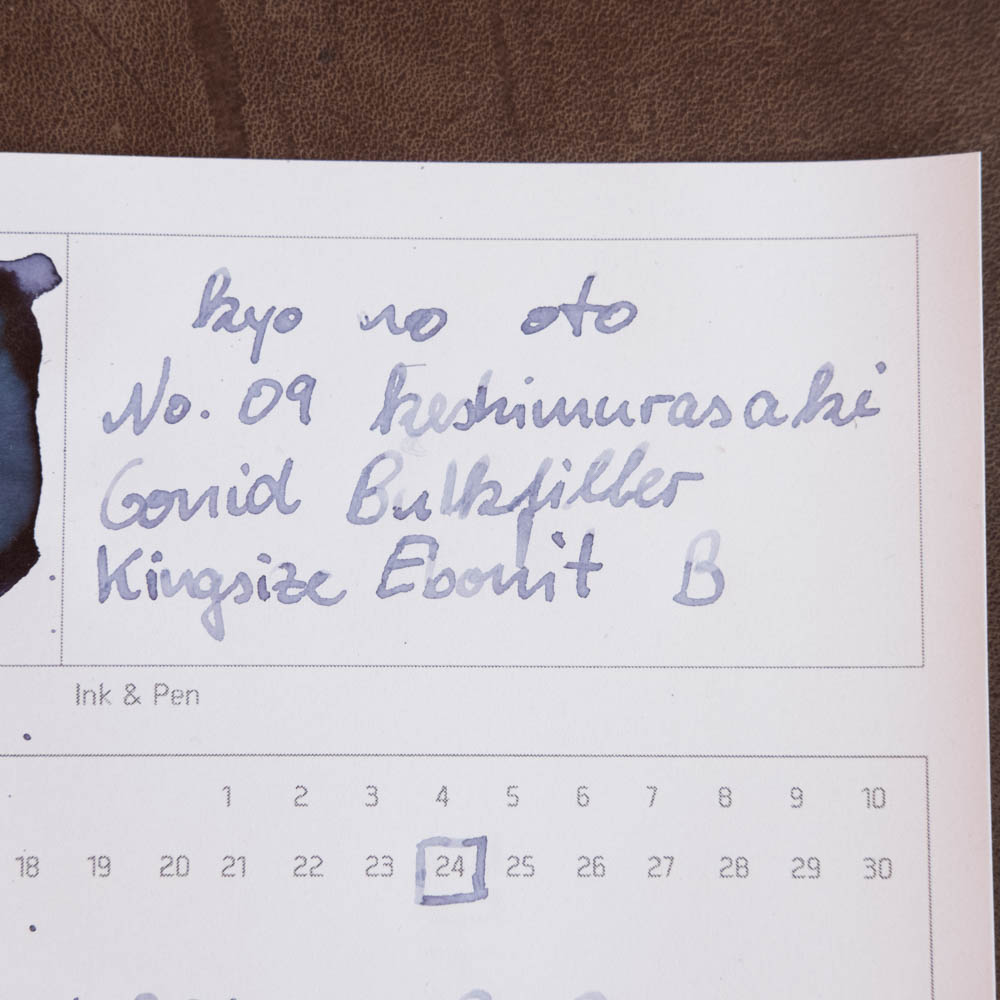 kyo no oto
No. 09 keshimurasaki
Conid Bulkfiller
Kingsize Ebonit B
Ink & Pen
1 2 3 4 5 6 7 8 9 10
18 19 20 21 22 23 24 25 26 27 28 29 30